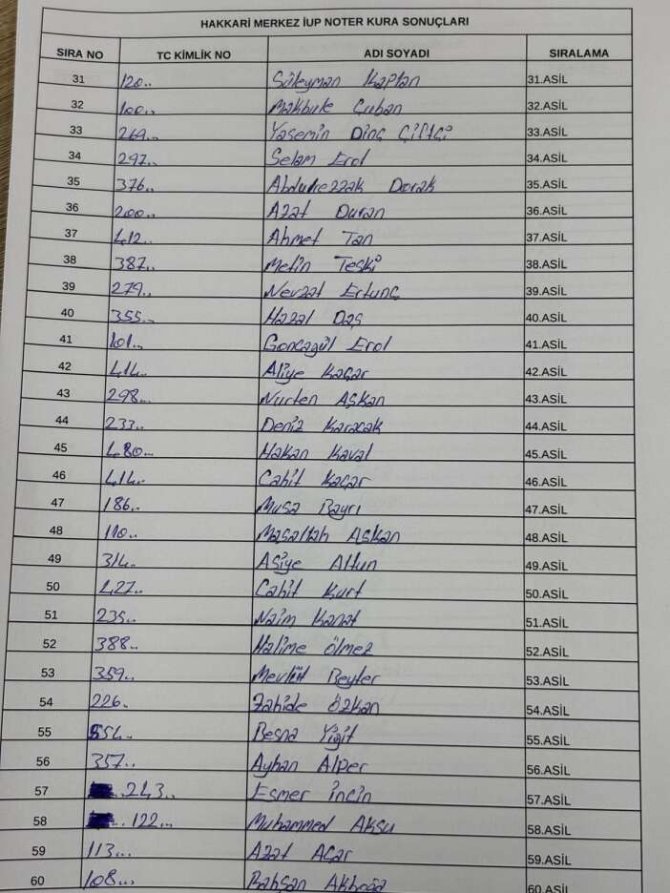 HAKKARİ MERKEZ İUP NOTER KURA SONUÇLARI
SIRA NO TC KİMLİK NO ADI SOYADI SIRALAMA
31 120.. Süleyman Kaplan 31.ASİL
32 100.. Makbule Çuban 32.ASİL
33 269.. Yasemin Dinç Çiftçi 33.ASİL
34 297.. Selam Erol 34.ASİL
35 376.. Abdurezzak Dorak 35.ASİL
36 200.. Azat Duran 36.ASİL
37 412.. Ahmet Tan 37.ASİL
38 387.. Metin Teski 38.ASİL
39 279.. Nevzat Ertunç 39.ASİL
40 355.. Hazal Daş 40.ASİL
41 101.. Goncagül Erol 41.ASİL
42 414.. Aliye Kaçar 42.ASİL
43 298... Nurten Aşkan 43.ASİL
44 233.. Deniz Karacak 44.ASİL
45 480.. Hakan Kaval 45.ASİL
46 414.. Cahit Kaçar 46.ASİL
47 186.. Musa Bayrı 47.ASİL
48 110.. Maşallah Aşkan 48.ASİL
49 314.. Asiye Altun 49.ASİL
50 427.. Cahit Kurt 50.ASİL
51 235.. Naim Kanat 51.ASİL
52 388.. Halime Ölmez 52.ASİL
53 359.. Mevlüt Beyter 53.ASİL
54 226. Zahide Özkan 54.ASİL
55 554.. Besna Yiğit 55.ASİL
56 357.. Ayhan Alper 56.ASİL
57 .243.. Esmer İncin 57.ASİL
58 .122... Muhammed Aksu 58.ASİL
59 113... Azat Acar 59.ASİL
60 108... Bahsan Akboğa 60.ASİL